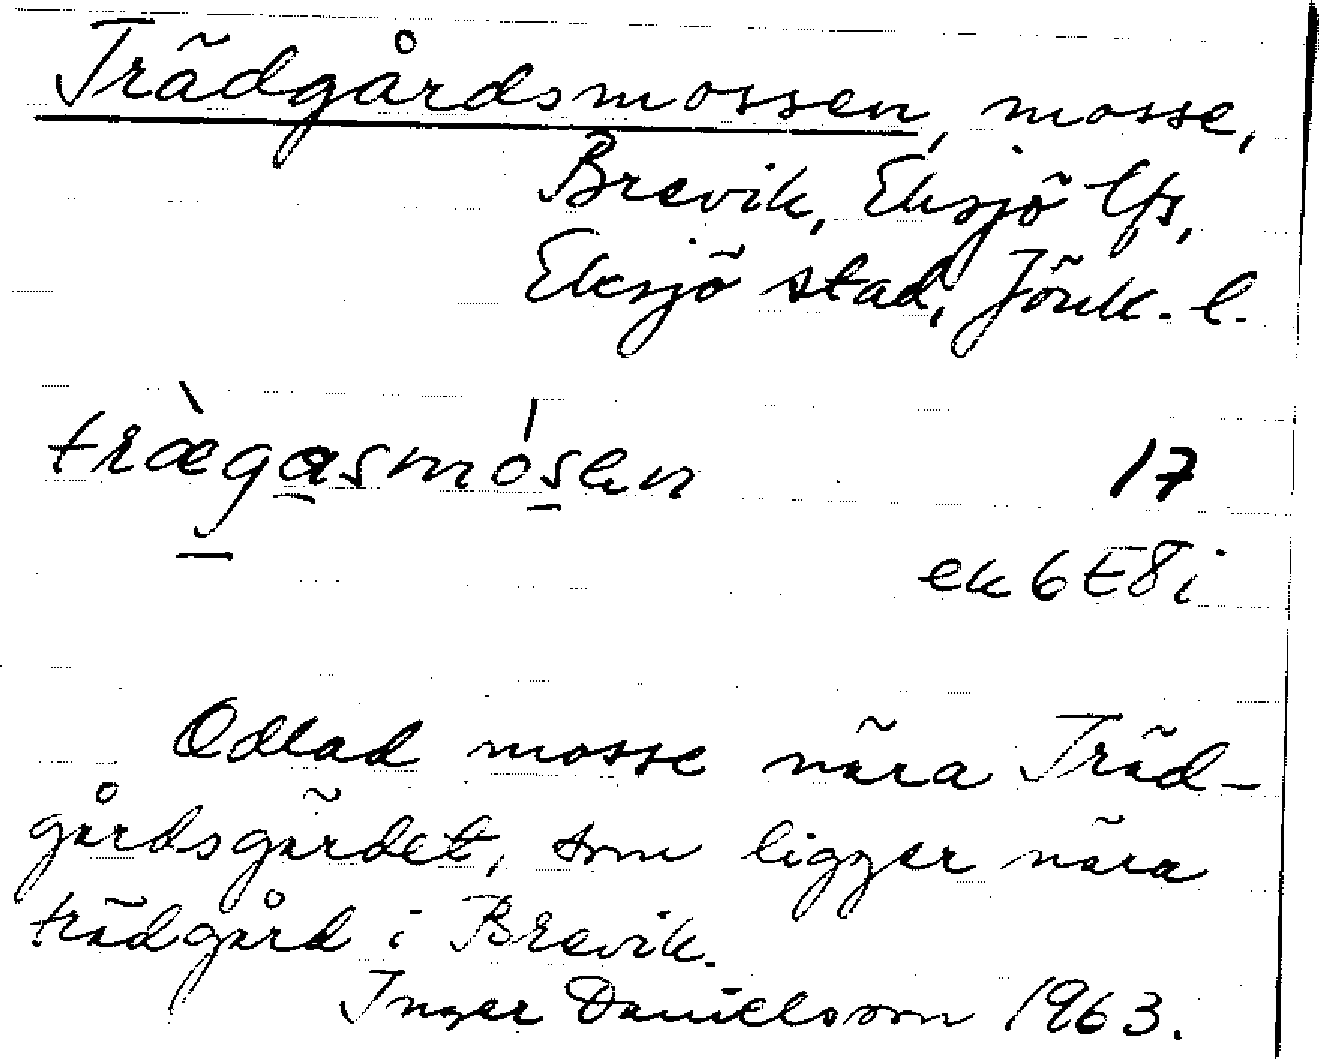 Trädgårdsmossen, mosse,
Brevik, Eksjö lfs,
Eksjö stad, Jönk. l.
træ̀gasmósen 17
ek 6E8i
Odlad mosse nära Träd-
gårdsgärdet, som ligger nära
trädgård i Brevik.
Inger Danielsson 1963.